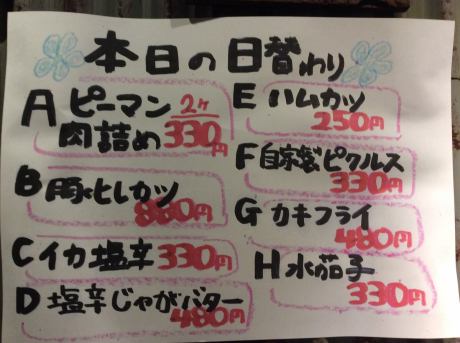 本日の日替わり
A ピーマン 2ヶ
肉詰め 330円
B 豚ヒレカツ
880円
C イカ塩辛 330円
D 塩辛じゃがバター
480円
E ハムカツ
250円
F 自家製ピクルス
330円
G カキフライ
480円
H 水茄子
330円